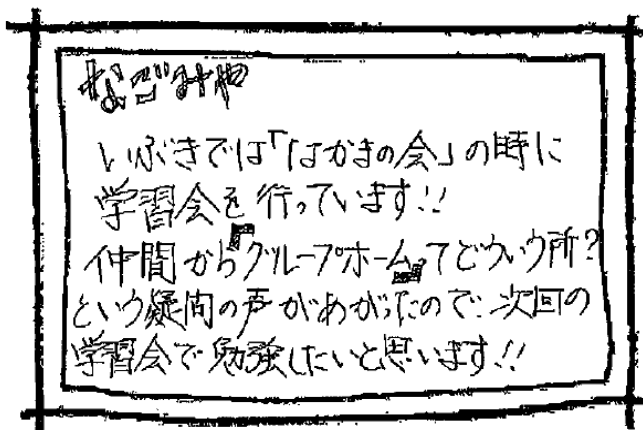 なごみや
いぶきでは「はかまの会」の時に
学習会を行っています!!
仲間から『グループホーム』ってどういう所?
という疑問の声があがったので、次回の
学習会で勉強したいと思います!!